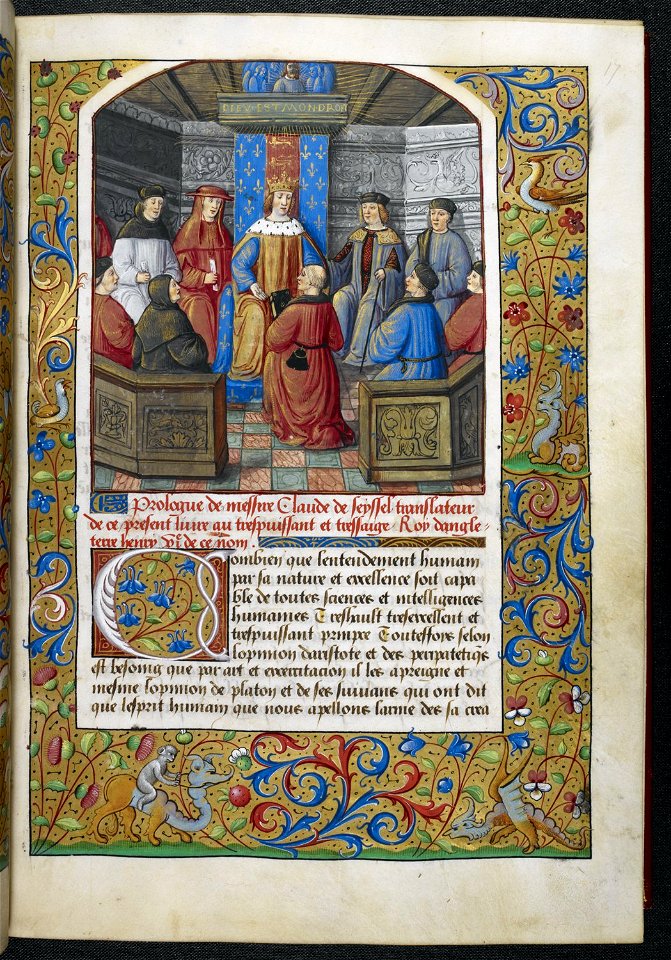 17
DIEV EST MON DROI
Prologue de messire Claude de seyssel translateur
de ce present livre au trespuissant et tressaige Roy dangle-
terre henry vije de ce nom .
Combien que lentendement humain
par sa nature et excellence soit capa
ble de toutes sciences et intelligences
humaines Treshault tresexcellent et
trespuissant prince Toutesfois selon
lopinion daristote et des peripatetiqs
est besoing que par art et exercitation il les apreigne et
mesme lopinion de platon et de ses suivans qui ont dit
que lesprit humain que nous apellons lame des sa crea